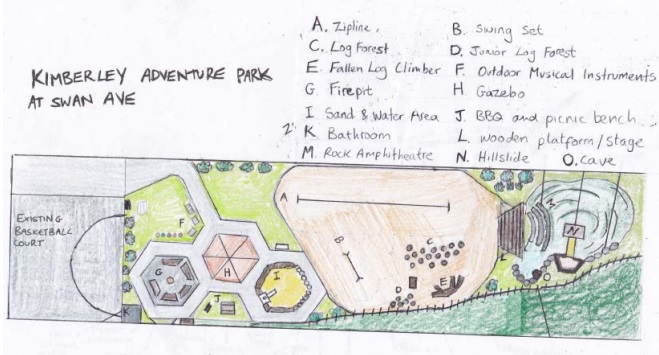 KIMBERLEY ADVENTURE PARK
AT SWAN AVE
A. Zipline.
B. Swing Set
C. Log Forest
D. Junior Log Forest
E. Fallen Log Climber
F. Outdoor Musical Instruments
G. Firepit
H Gazebo
I Sand & Water Area
J. BBQ and picnic bench.
K Bathroom
L. wooden platform/stage
M. Rock Amphitheatre
N. Hillslide
O. cave
EXISTING
BASKETBALL
COURT
A
F
B
C
M
N
G
H
I
L
O
J
D
E
K